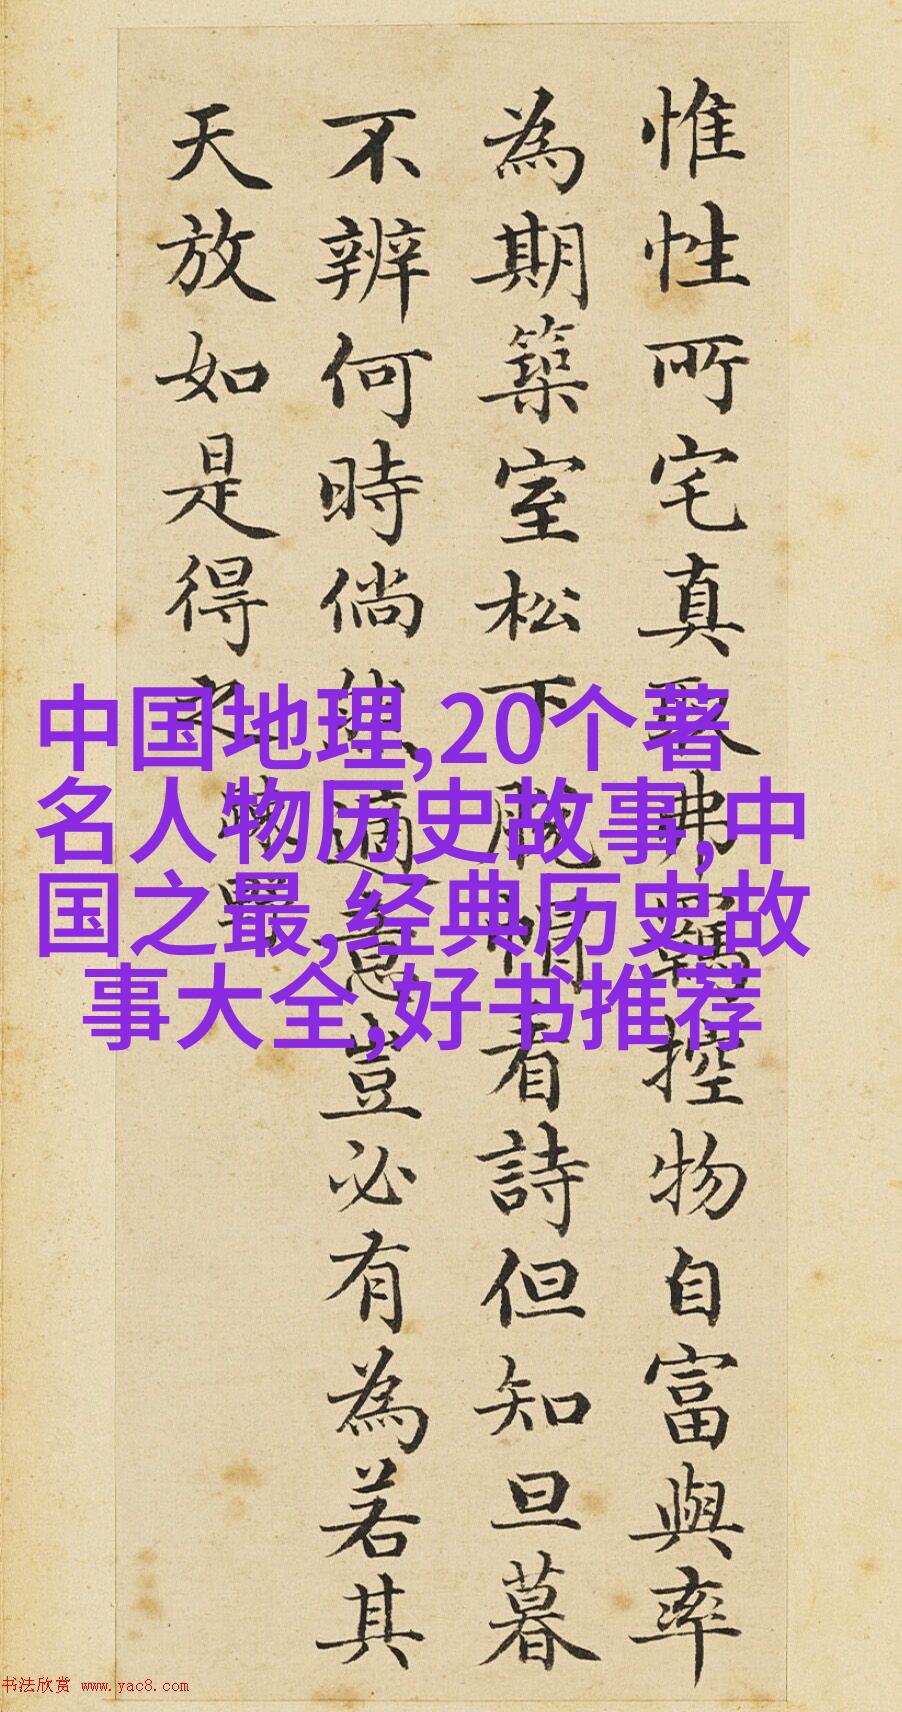 惟性所宅真取弗羈控物自富與率
為期築室松下脫帽看詩但知旦暮
不辨何時倘然適意豈必有為若其
天放如是得之
中国地理,20个著
名人物历史故事,中
国之最,经典历史故
事大全,好书推荐
书法欣赏 www.yac8.com